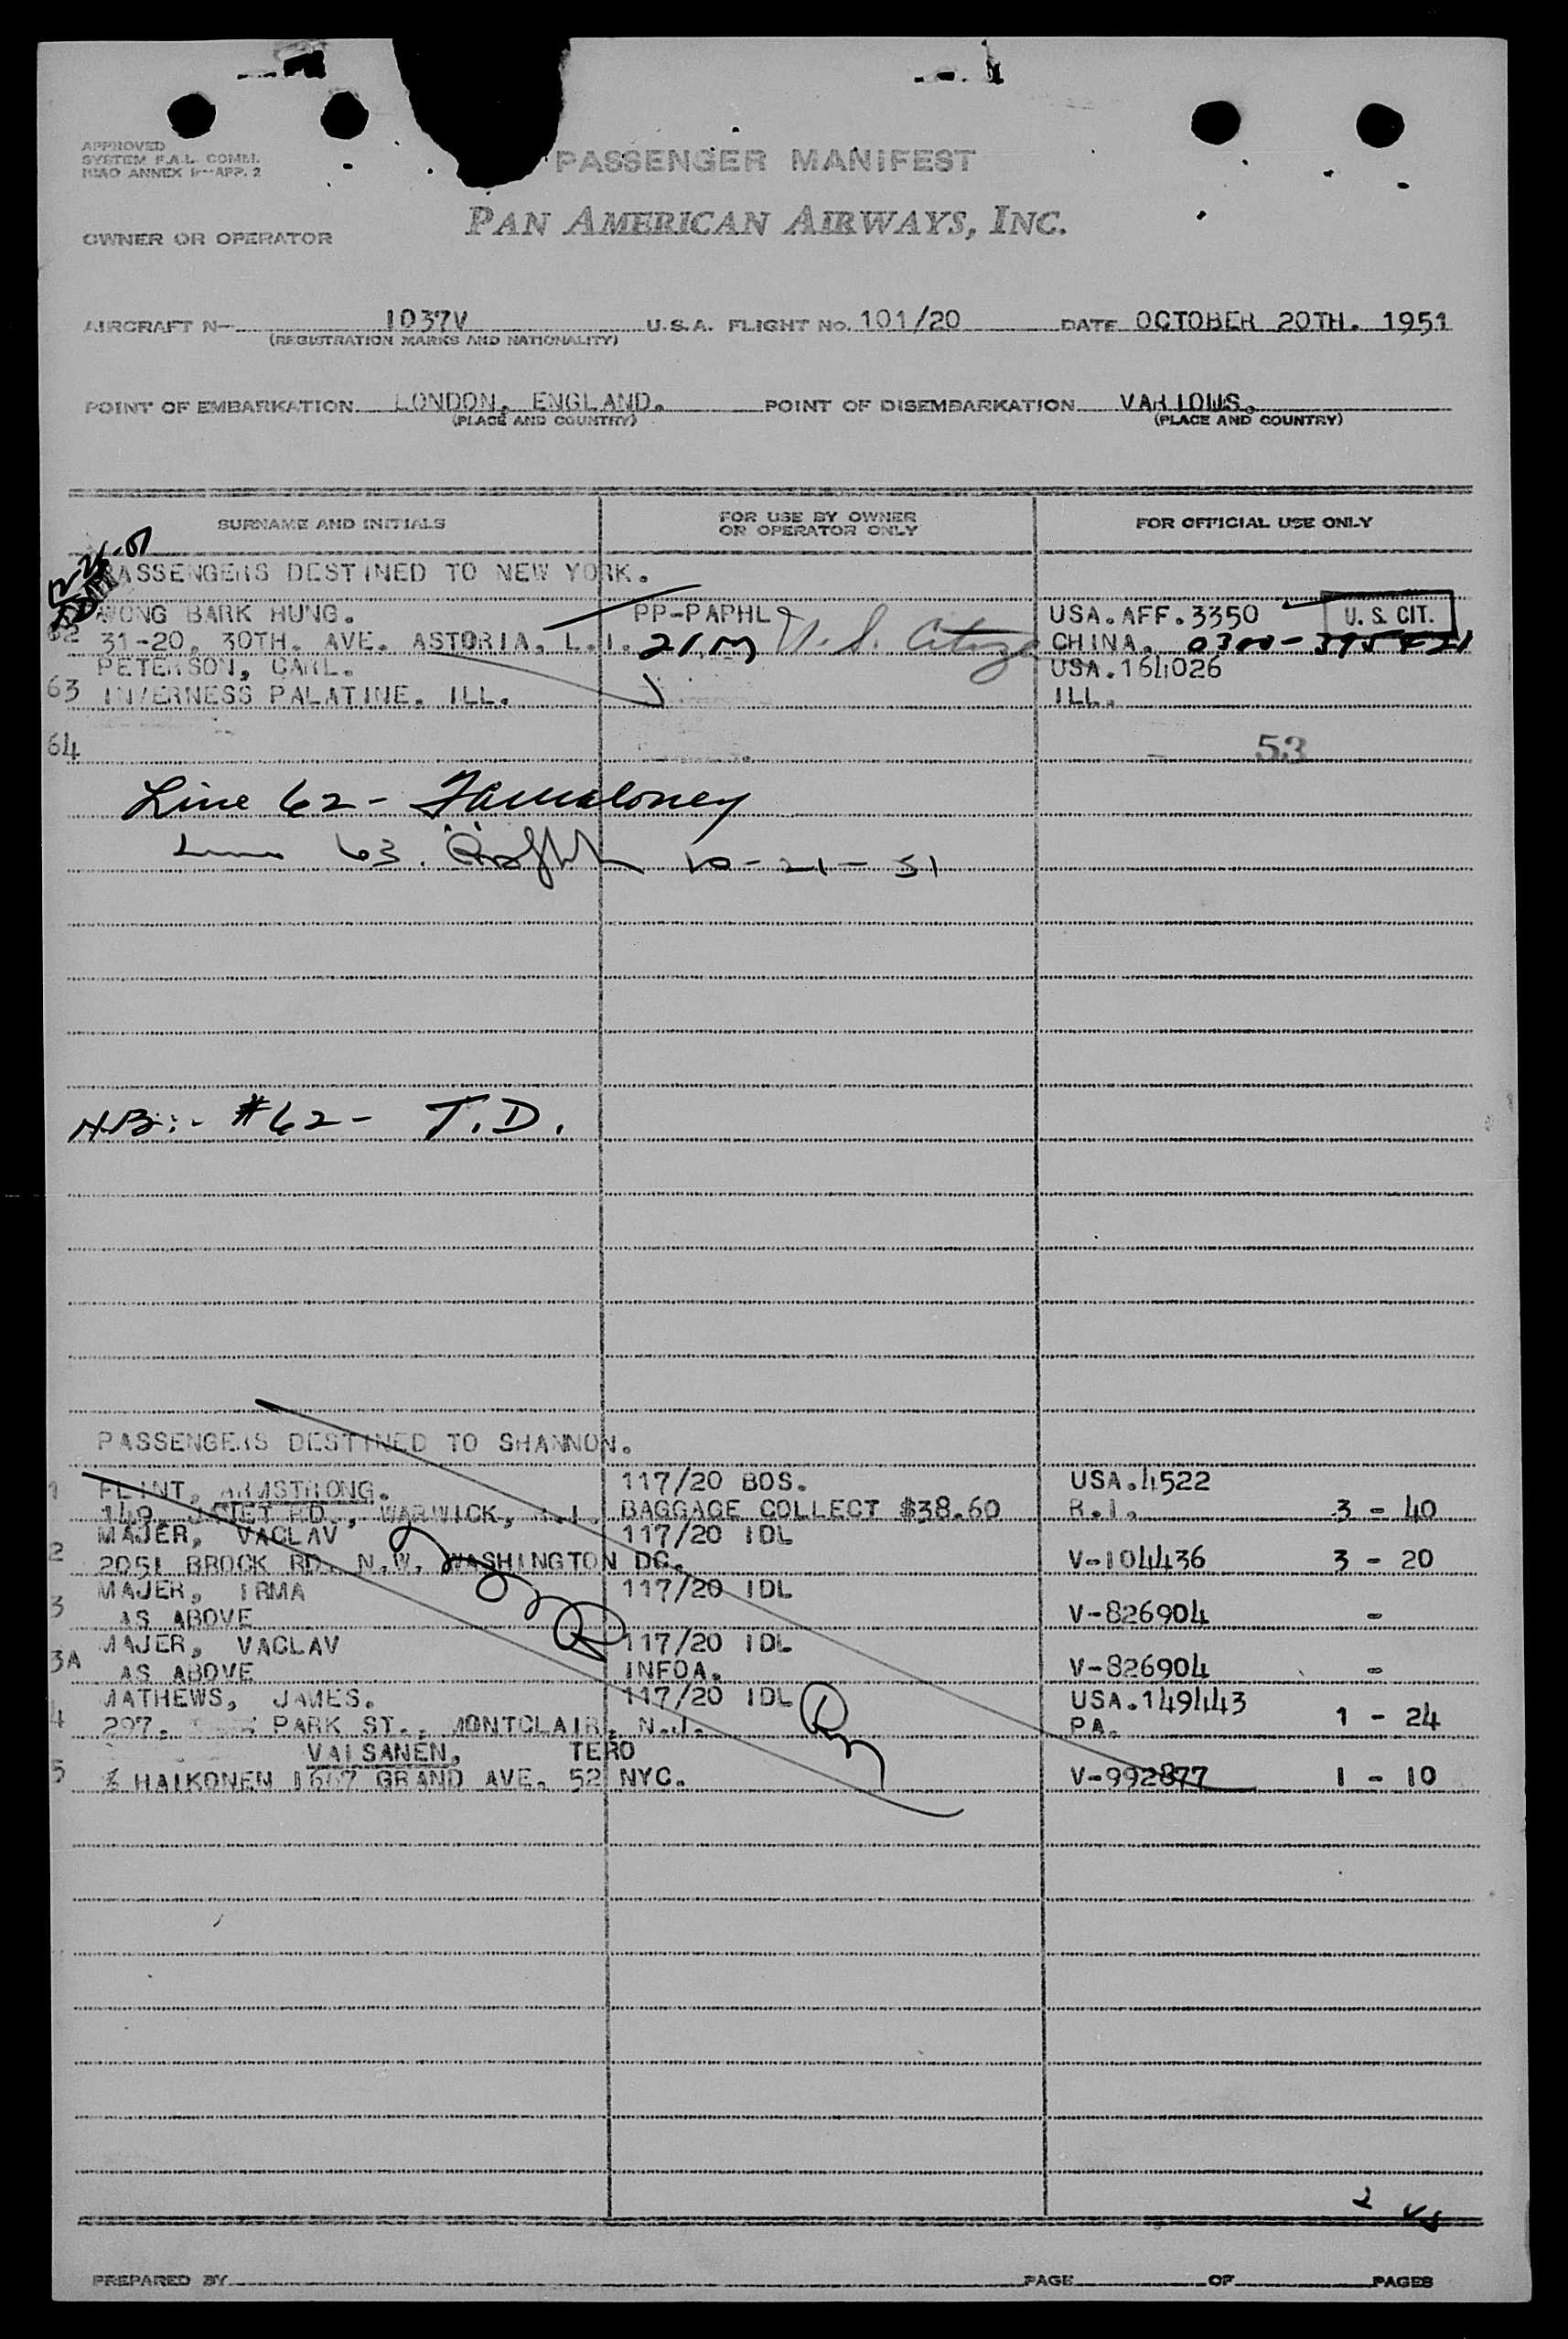 APPROVED
SYSTEM F.A.L. COMM.
ICAO ANNEX 9--APP. 2
PASSENGER MANIFEST
PAN AMERICAN AIRWAYS, INC.
OWNER OR OPERATOR
AIRCRAFT N- 1037V U.S.A. FLIGHT NO. 101/20 DATE OCTOBER 20TH. 1951
(REGISTRATION MARKS AND NATIONALITY)
POINT OF EMBARKATION LONDON, ENGLAND. POINT OF DISEMBARKATION VARIOUS.
(PLACE AND COUNTRY) (PLACE AND COUNTRY)
SURNAME AND INITIALS FOR USE BY OWNER OR OPERATOR ONLY FOR OFFICIAL USE ONLY
PASSENGERS DESTINED TO NEW YORK.
WONG BARK HUNG. PP-PAPHL USA.AFF.3350 U. S. CIT.
62 31-20, 30TH. AVE. ASTORIA, L.I. 21 M U. S. Citizen CHINA. 0300-
PETERSON, CARL. USA.164026
63 INVERNESS PALATINE. ILL. ILL.
64 53
Line 62-
Line 63. 10-21-51
NB:- #62- T.D.
PASSENGERS DESTINED TO SHANNON.
1 FLINT, ARMSTRONG. 117/20 BOS. USA.4522
149, RD., WARWICK, R.I. BAGGAGE COLLECT $38.60 R.I. 3 - 40
MAJER, VACLAV 117/20 IDL
2 2051 BROCK RD. N.W. WASHINGTON DC. V-104436 3 - 20
MAJER, IRMA 117/20 IDL
3 AS ABOVE V-826904 -
MAJER, VACLAV 117/20 IDL
3A AS ABOVE INFOA. V-826904 -
MATHEWS, JAMES. 117/20 IDL USA.149443
4 297. PARK ST., MONTCLAIR, N.J. PA. 1 - 24
VAISANEN, TERO
5 % HAIKONEN 1667 GRAND AVE. 52 NYC. V-992877 1 - 10
2
PREPARED BY PAGE OF PAGES